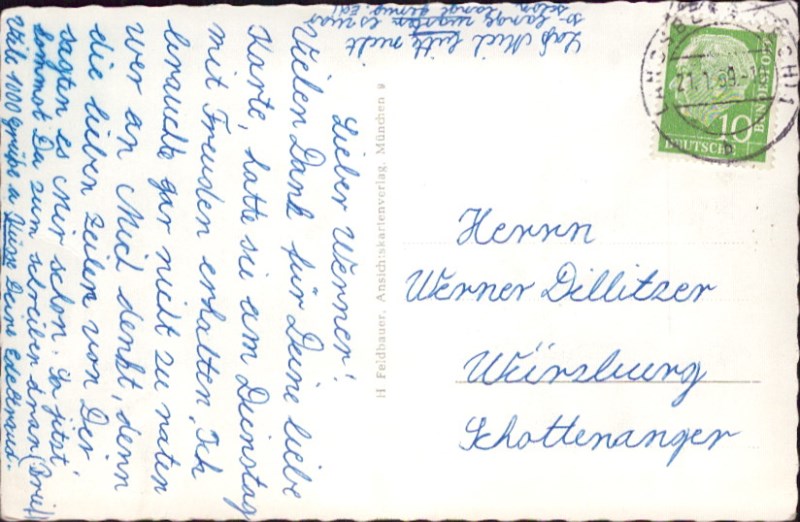 Lieber Werner!
Vielen Dank für Deine liebe
Karte, hatte sie am Dienstag
mit Freuden erhalten. Ich
brauchte gar nicht zu raten
wer an Mich denkt, denn
die lieben Zeilen von Dir
sagten es Mir schon. So jetzt
kommst Du zum schreiben dran (Brief)
Viele 1000 Grüße u. Küsse Deine Edeltraud.
Laß Mich bitte nicht
so lange warten es war
schon lange genug.
H Feldbauer, Ansichtskartenverlag, München 9
21.1.60
10
DEUTSCHE
BUNDESPOST
Herrn
Werner Dillitzer
Würzburg
Schottenanger